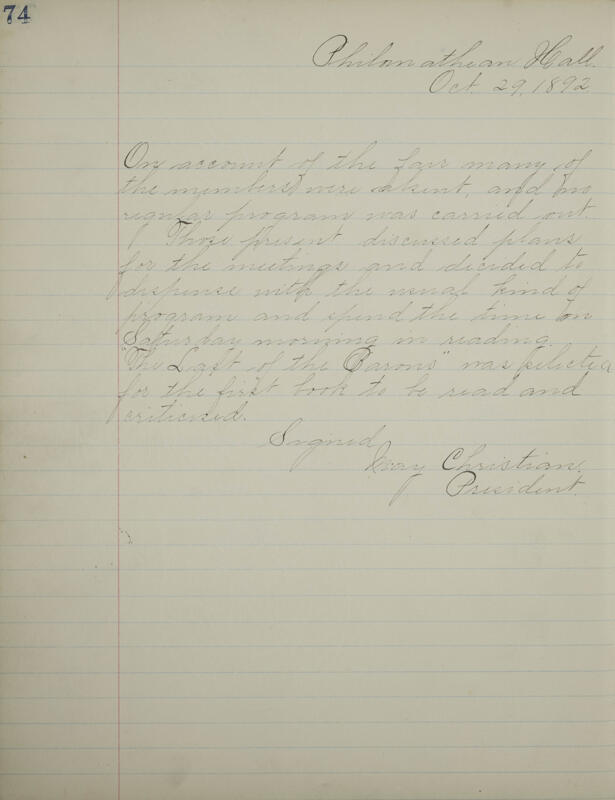 74
Philomathean Hall.
Oct. 29, 1892
On account of the fair many of
the members were absent, and no
regular program was carried out.
Those present discussed plans
for the meetings and decided to
dispense with the usual kind of
program and spend the time on
Saturday morning in reading.
"The Last of the Barons" was selected
for the first book to be read and
criticised.
Signed
May Christian.
President.